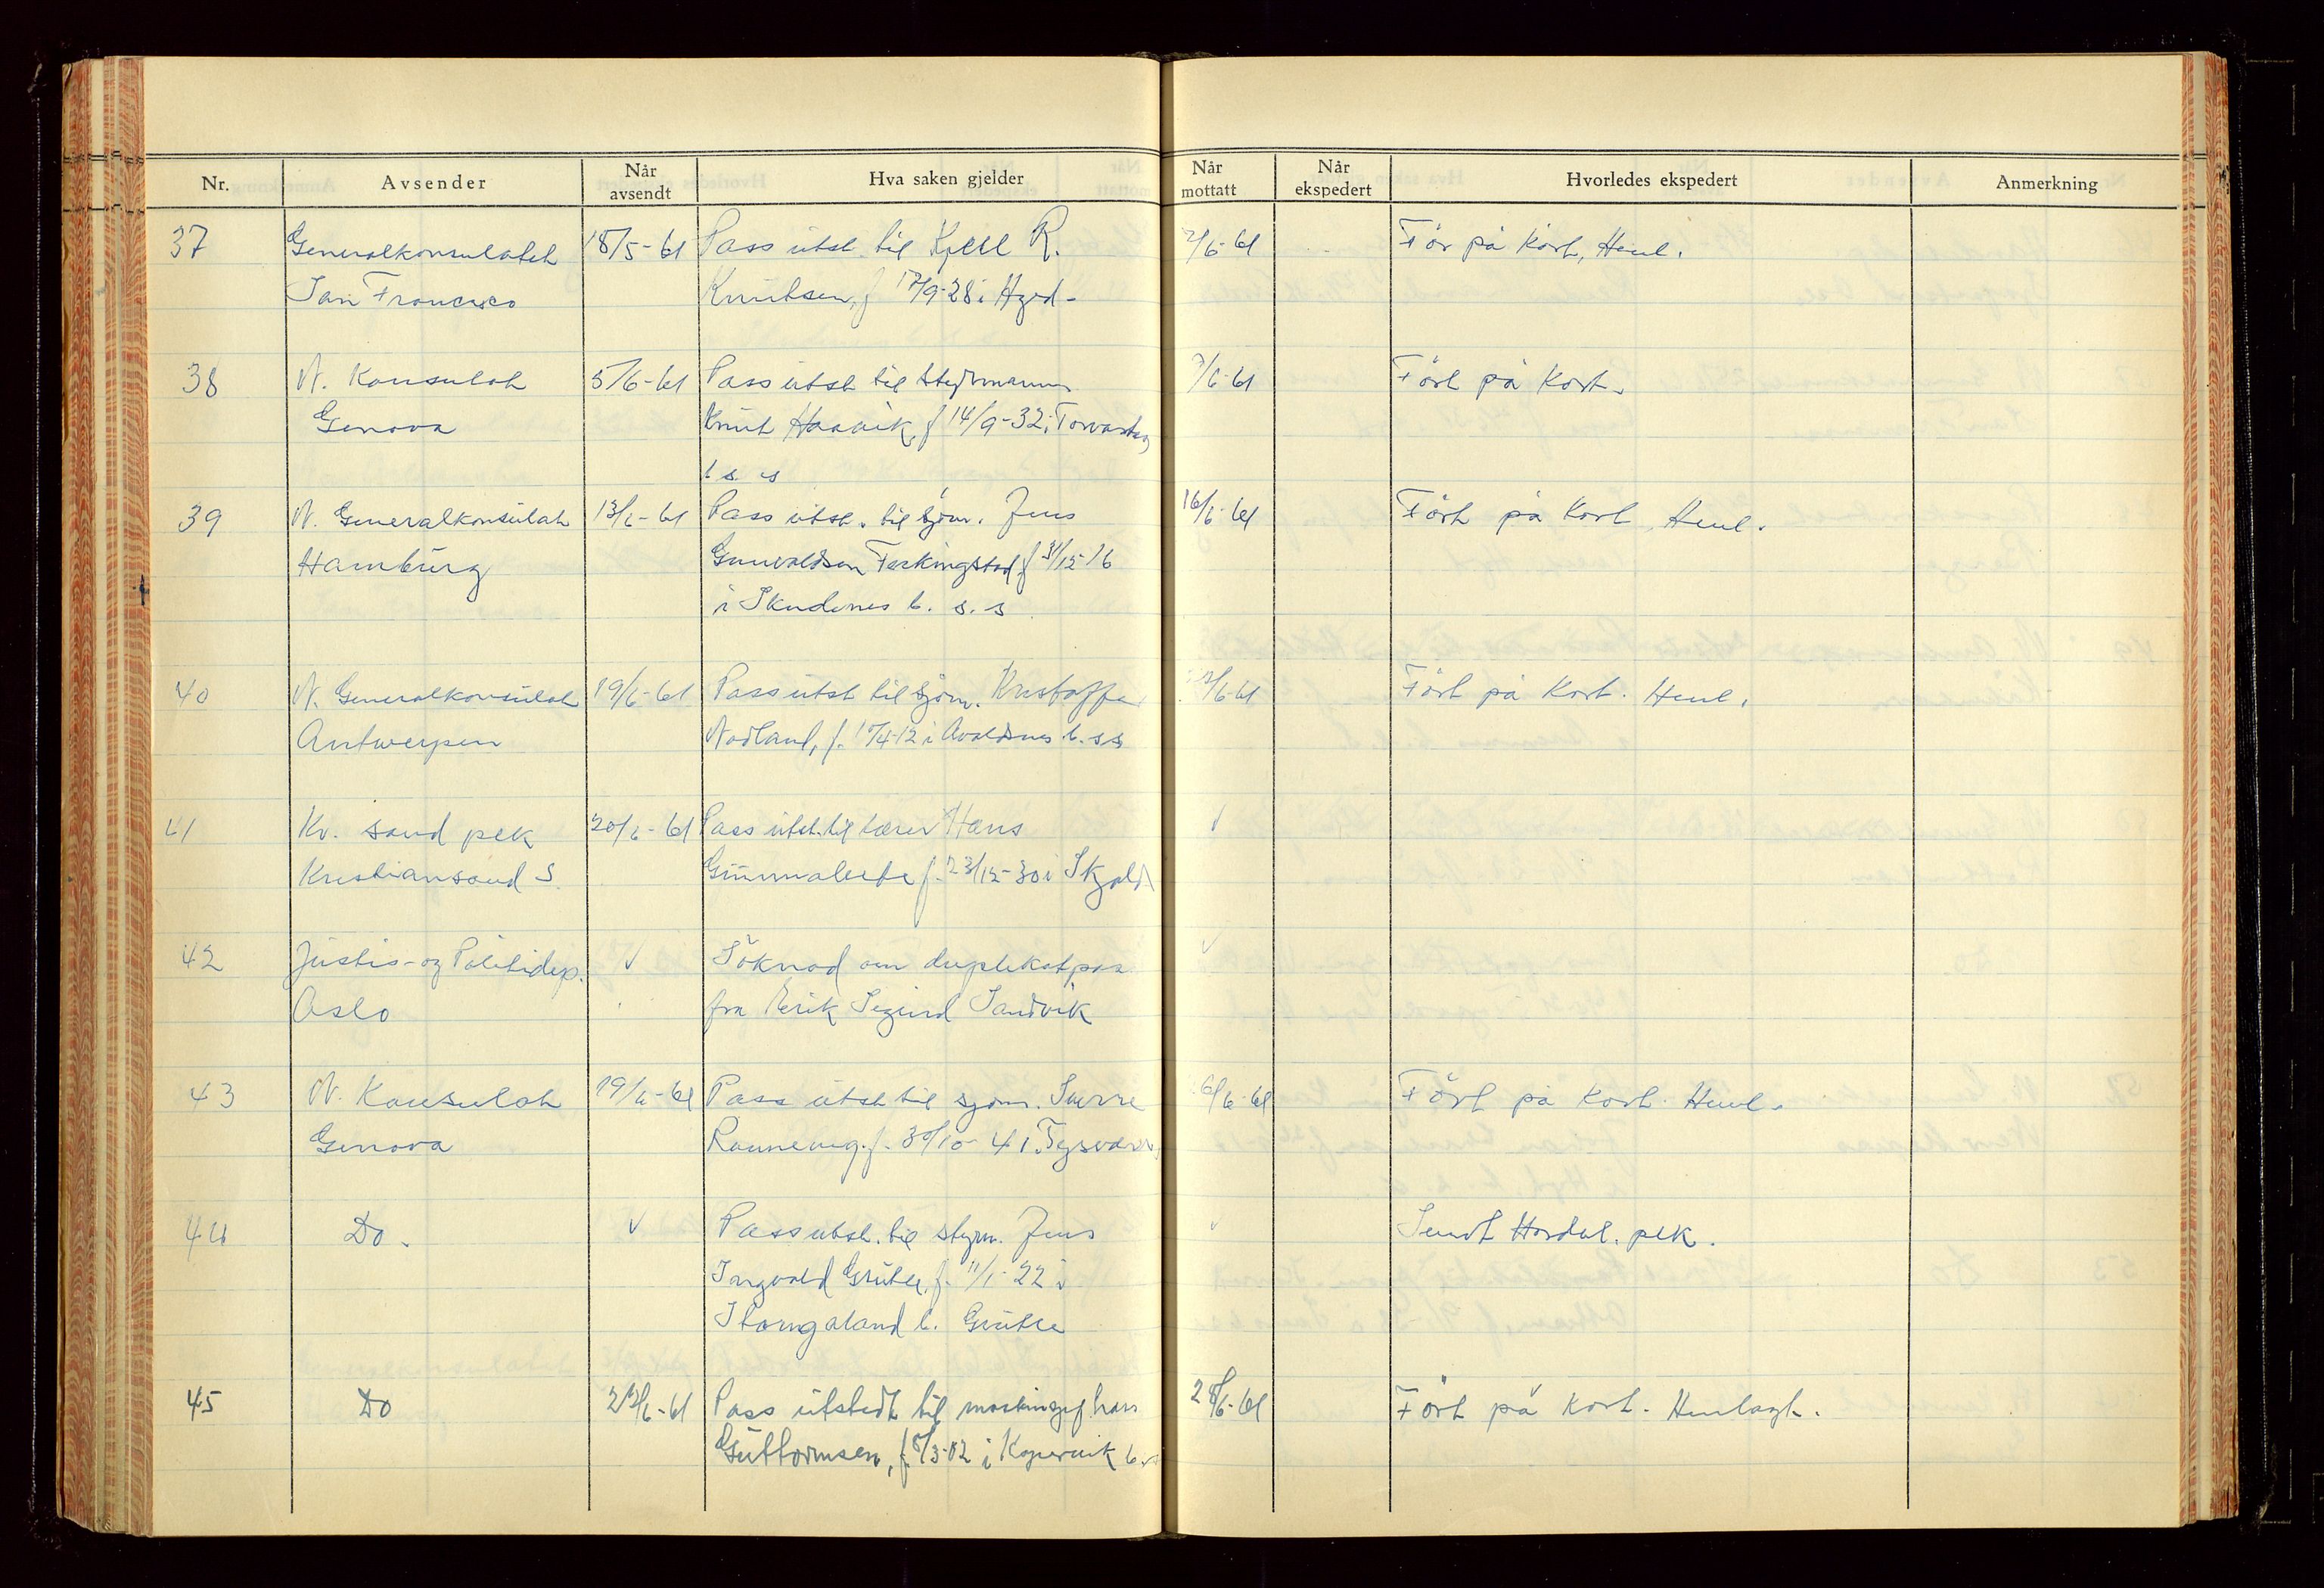 Nr. Avsender Når avsendt Hva saken gjelder Når mottatt Når ekspedert Hvorledes ekspedert Anmerkning
37 Generalkonsulatet 18/5-61 Pass utst. til Kjell R. 2/6-61 För på Kort, Henl.
San Francisco Knutsen, f 17/9-28 i Hgsd-
38 N. Konsulat 5/6-61 Pass utst til styrmann 7/6-61 Fört på Kort.
Genova Knut Haavik, f 14/9-32 i Torvastag
b s s
39 N. Generalkonsulat 13/6-61 Pass utst. til sjöm. Jens 16/6-61 Fört på Kort Henl.
Hamburg Gunvaldsen Ferkingstad f 31/12-16
i Skudenes b. s. s
40 N. Generalkonsulat 19/6-61 Pass utst til sjöm. Kristoffer /6-61 Fört på Kort. Henl.
Antwerpen Nodland, f. 17/4-12 i Avaldsnes b. s s
41 Kr. sand pkk 20/6-61 Pass utst. til lærer Hans √
Kristiansand S. f. 23/12-30 i Skjold
42 Justis- og Politidep. √ Söknad om duplikatpass √
Oslo fra Erik Sigurd Sandvik
43 N. Konsulat 19/6-61 Pass utst til sjöm. Sverre /6-61 Fört på Kort. Henl.
Genova f. 30/10-41 i Tysvær
44 Do. √ Pass utst. til styrm. Jens √ Sendt Hordal. pkk.
Ingvald Grutle, f. 11/1-22 i
b. Grutle
45 Do 23/6-61 Pass utstedt til maskinsjef hans 28/6-61 Fört på Kort. Henlagt.
Guttormsen, f. 8/3-02 i Kopervik b.